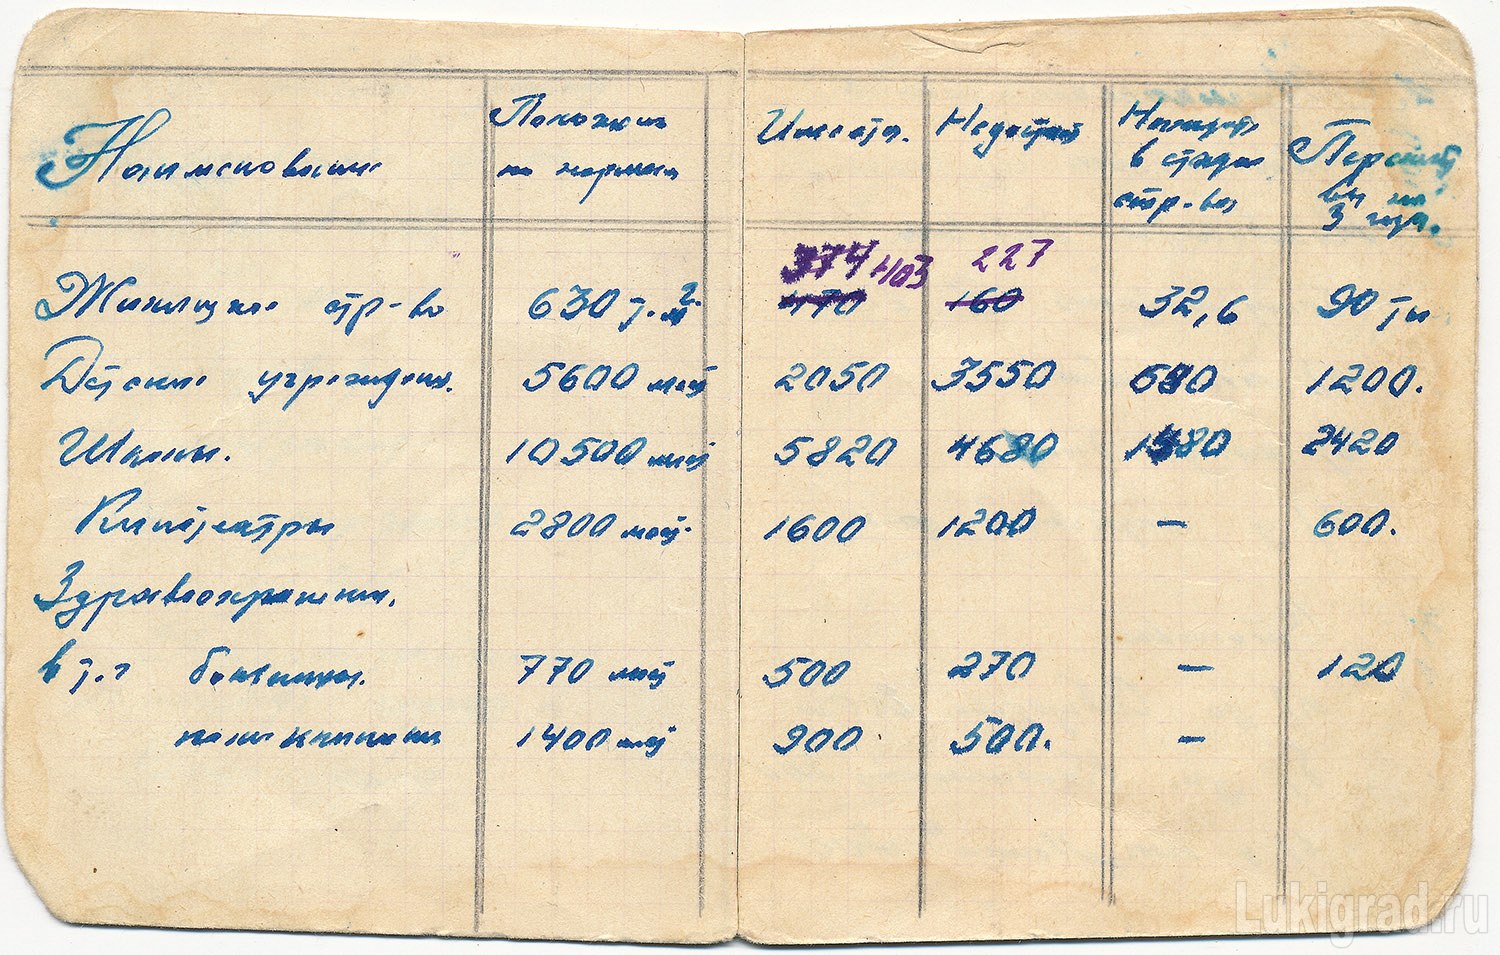 Наименование Положено Имеется. Недостает Находит. Перспект
по нормам в стадии вы на
стр-ва 3 года.
374 403 227
Жилищное стр-во 630 т.м². 470 160 32,6 90 ты
Детские учрежден. 5600 мест 2050 3550 680 1200.
Школы. 10500 мест 5820 4680 2420
Кинотеатры 2800 мест. 1600 1200 — 600.
Здравоохранение.
в т.ч больницы. 770 мест 500 270 — 120
поликлиники 1400 мест 900 500. —
Lukigrad.ru